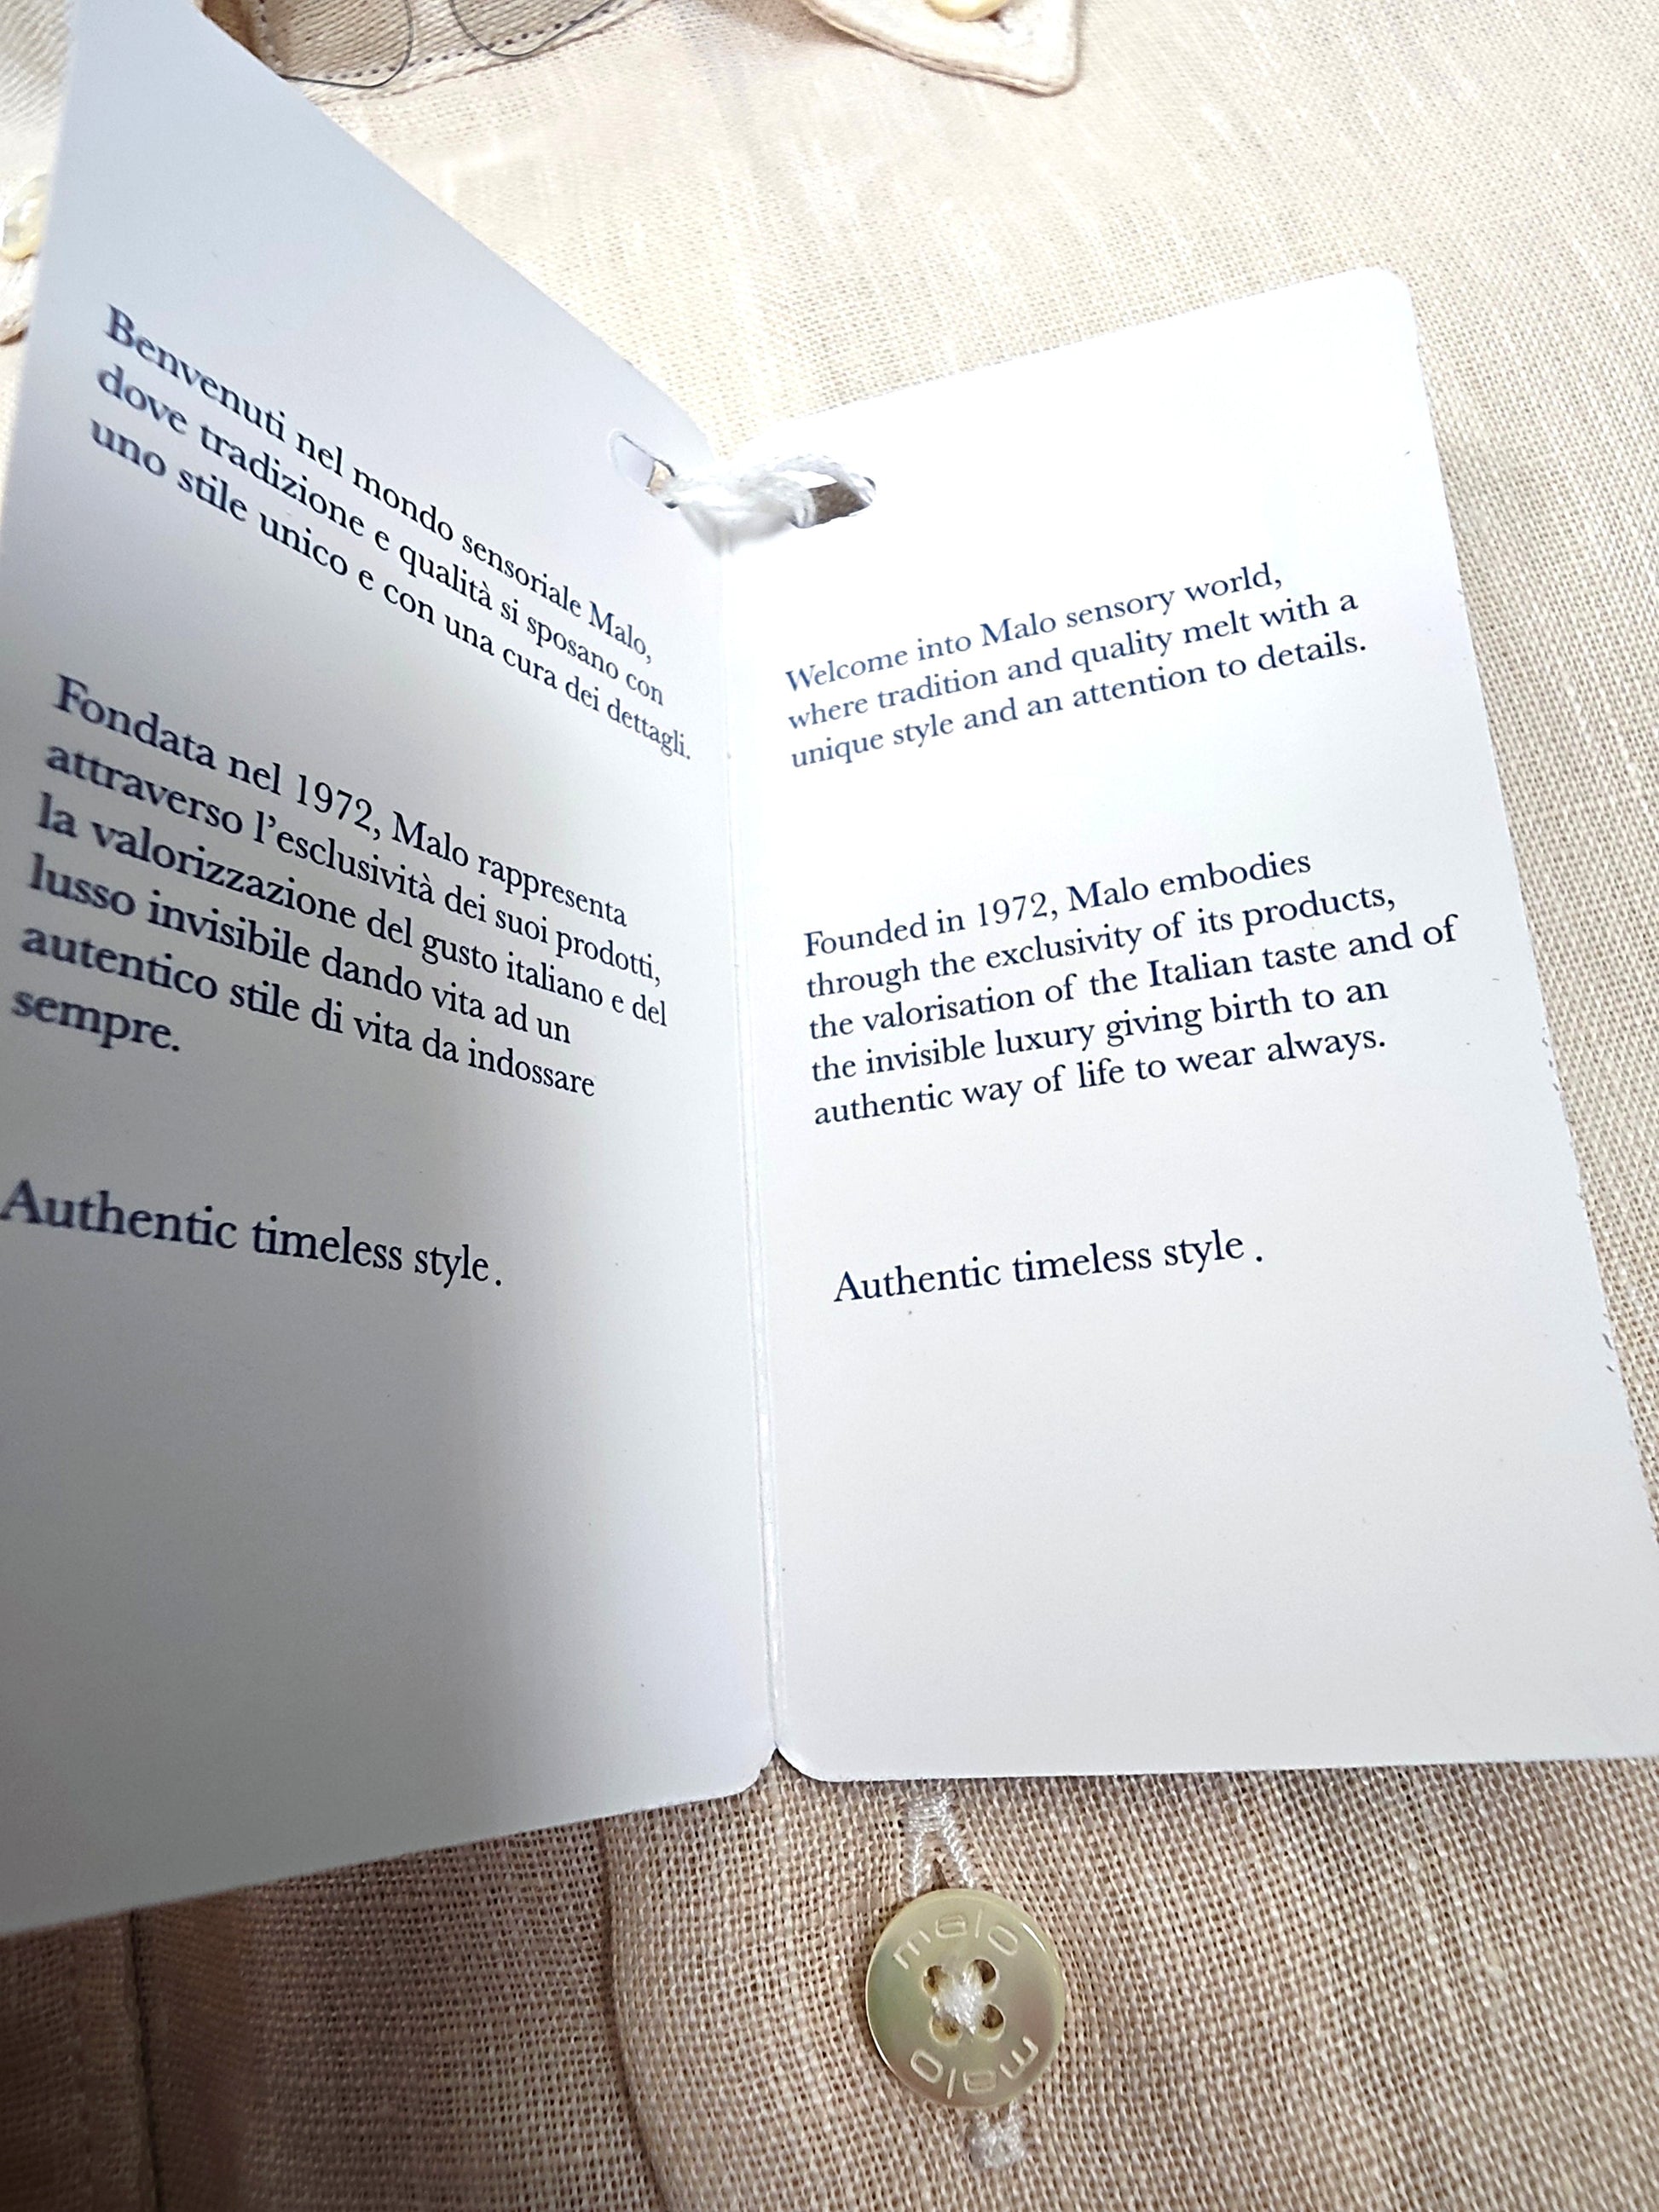 Benvenuti nel mondo sensoriale Malo,
dove tradizione e qualità si sposano con
uno stile unico e con una cura dei dettagli.
Fondata nel 1972, Malo rappresenta
attraverso l'esclusività dei suoi prodotti,
la valorizzazione del gusto italiano e del
lusso invisibile dando vita ad un
autentico stile di vita da indossare
sempre.
Authentic timeless style.
Welcome into Malo sensory world,
where tradition and quality melt with a
unique style and an attention to details.
Founded in 1972, Malo embodies
through the exclusivity of its products,
the valorisation of the Italian taste and of
the invisible luxury giving birth to an
authentic way of life to wear always.
Authentic timeless style .
malo
malo